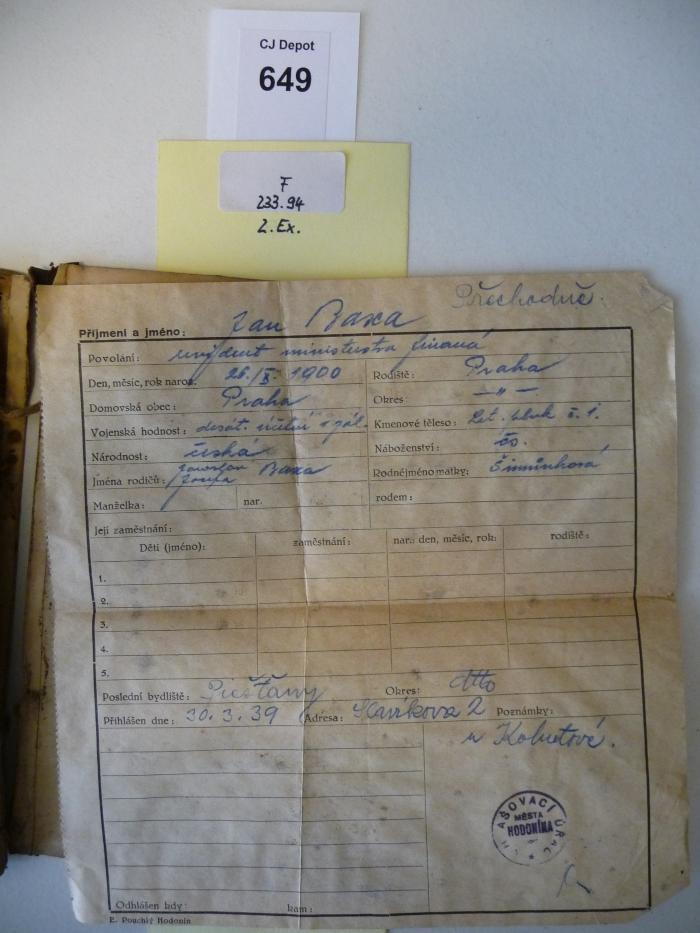 CJ Depot
649
F
233.94
2. Ex.
Přechodně.
Příjmení a jméno: Jan Baxa
Povolání: revident ministerstva financí
Den, měsíc, rok naroz. 26./X. 1900 Rodiště: Praha
Domovská obec: Praha Okres — " —
Vojenská hodnost: desát. účetní v zál. Kmenové těleso: Let. pluk č. 1.
Národnost: česká Náboženství: čs.
Jména rodičů: Jaroslav Josefa Baxa Rodné jméno matky: Šimůnková
Manželka: nar. rodem:
Její zaměstnání:
Děti (jméno): zaměstnání: nar.: den, měsíc, rok: rodiště:
1.
2.
3.
4.
5.
Poslední bydliště: Piešťany Okres: dtto
Přihlášen dne: 30.3.39 Adresa: Slavíkova 2 Poznámky:
u
OHLAŠOVACÍ ÚŘAD
MĚSTA
HODONÍNA
Odhlášen kdy: kam:
E. Pouchlý Hodonín